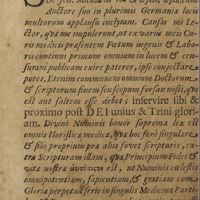 Auctore suo in plurimis Germaniæ locis
multorum applausu inclytam. Causas mi Le-
ctor, quæ me impulerunt, ut ex variis meis Cu-
riis medicis præsentem Fœtum ingenii & Labo-
ris continui primum omnium in lucem & cen-
suram publicam exire paterer, ipse conjectare
poter. Etenim communem omnium Doctorum
& scriptorum finem seu scopum forsan nosti, quæ
est aut saltem esse debet; inservire sibi &
proximo post DEI unius & Trini glori-
am. Divini Numinis honor suprema lex est
omnis Horisticæ medicæ, quæ hoc ferè singulare
& sibi proprium præ aliis fovet scripturis, ex-
tra Scripturam illam, quæ Principium Fidei &
vitæ nostræ est, ut Numinis cælestis
omnipotentiam, sapientiam & gratiam cum
Gloria perpetua ferè in singulis Medicinæ Parti-